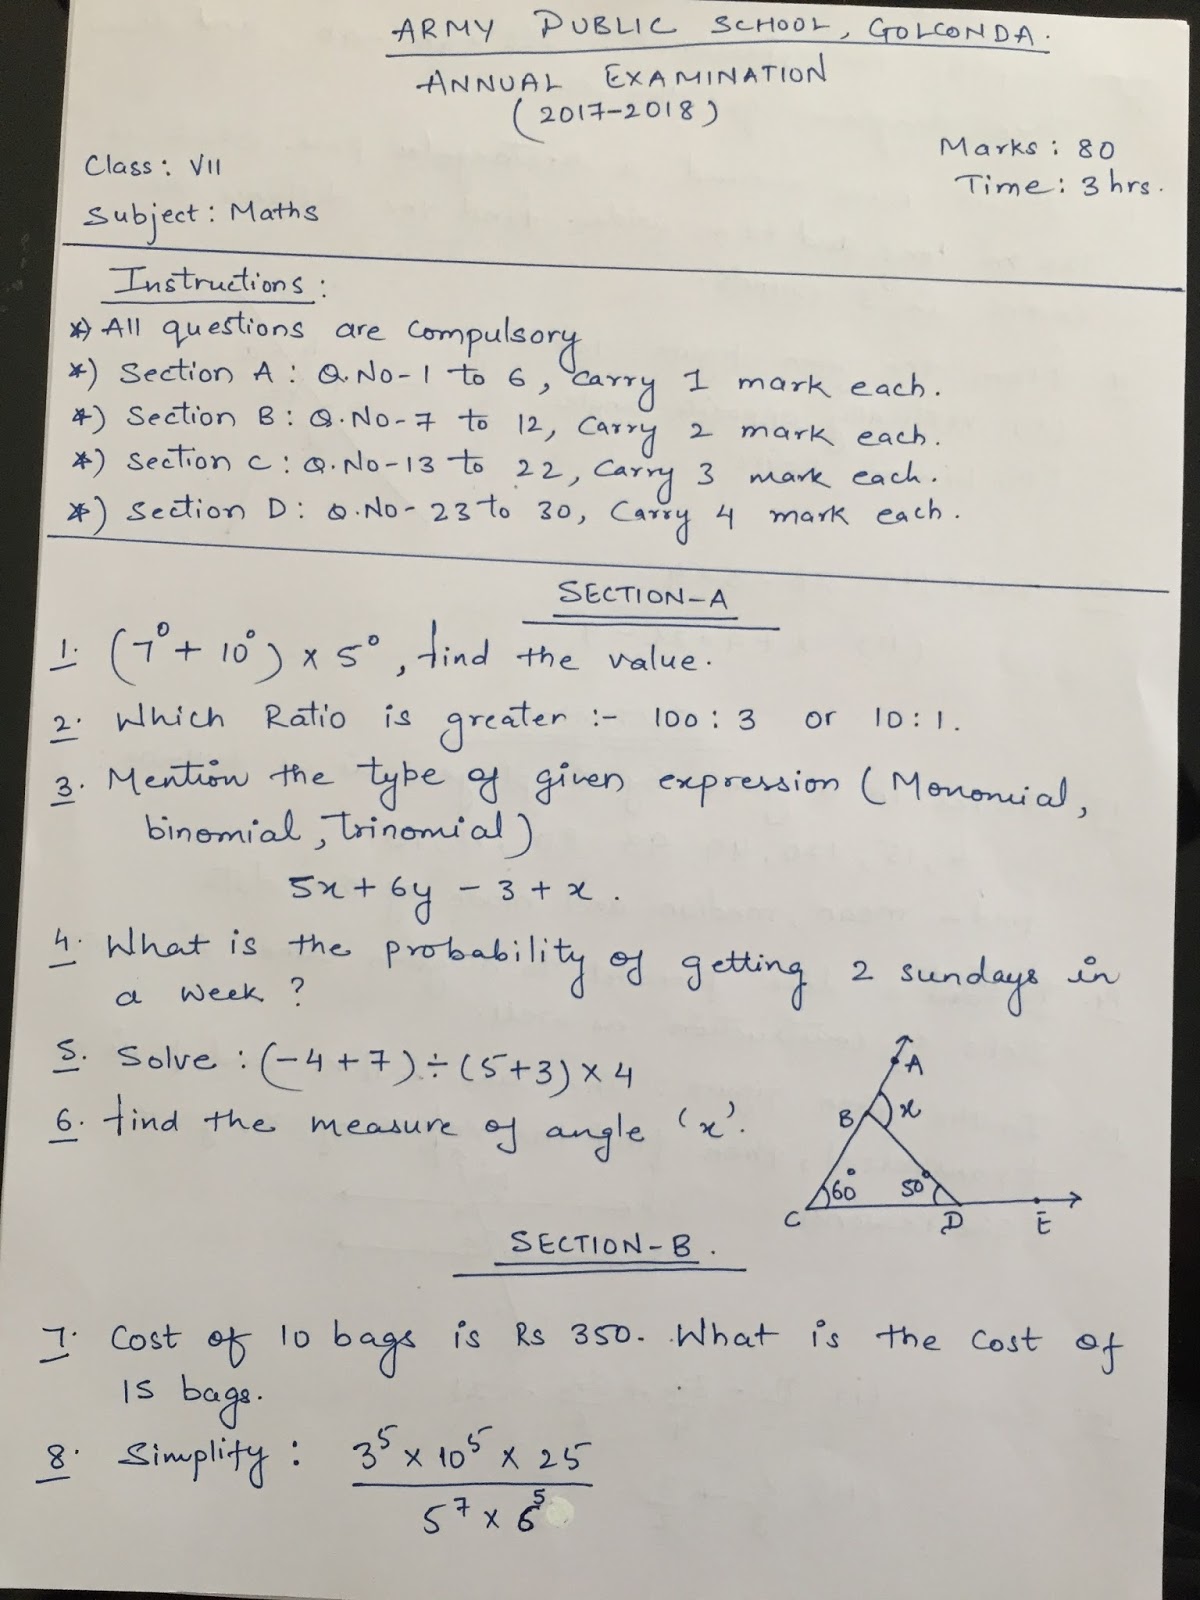 ARMY PUBLIC SCHOOL, GOLCONDA.
ANNUAL EXAMINATION
(2017-2018)
Marks: 80
Class: VII
Time: 3 hrs.
Subject: Maths
Instructions:
*) All questions are compulsory
*) Section A: Q.No-1 to 6, Carry 1 mark each.
*) Section B: Q.No-7 to 12, Carry 2 mark each.
*) Section C: Q.No-13 to 22, Carry 3 mark each.
*) Section D: Q.No-23 to 30, Carry 4 mark each.
SECTION-A
1. (7⁰ + 10⁰) × 5⁰, find the value.
2. Which Ratio is greater :- 100:3 or 10:1.
3. Mention the type of given expression (Monomial,
binomial, Trinomial)
5x + 6y - 3 + x.
4. What is the probability of getting 2 sundays in
a week?
5. Solve: (-4+7) ÷ (5+3) × 4
6. find the measure of angle 'x'.
A
B x
60° 50°
C D E
SECTION-B.
7. Cost of 10 bags is Rs 350. What is the cost of
15 bags.
8. Simplify: 3⁵ × 10⁵ × 25
5⁷ × 6⁵